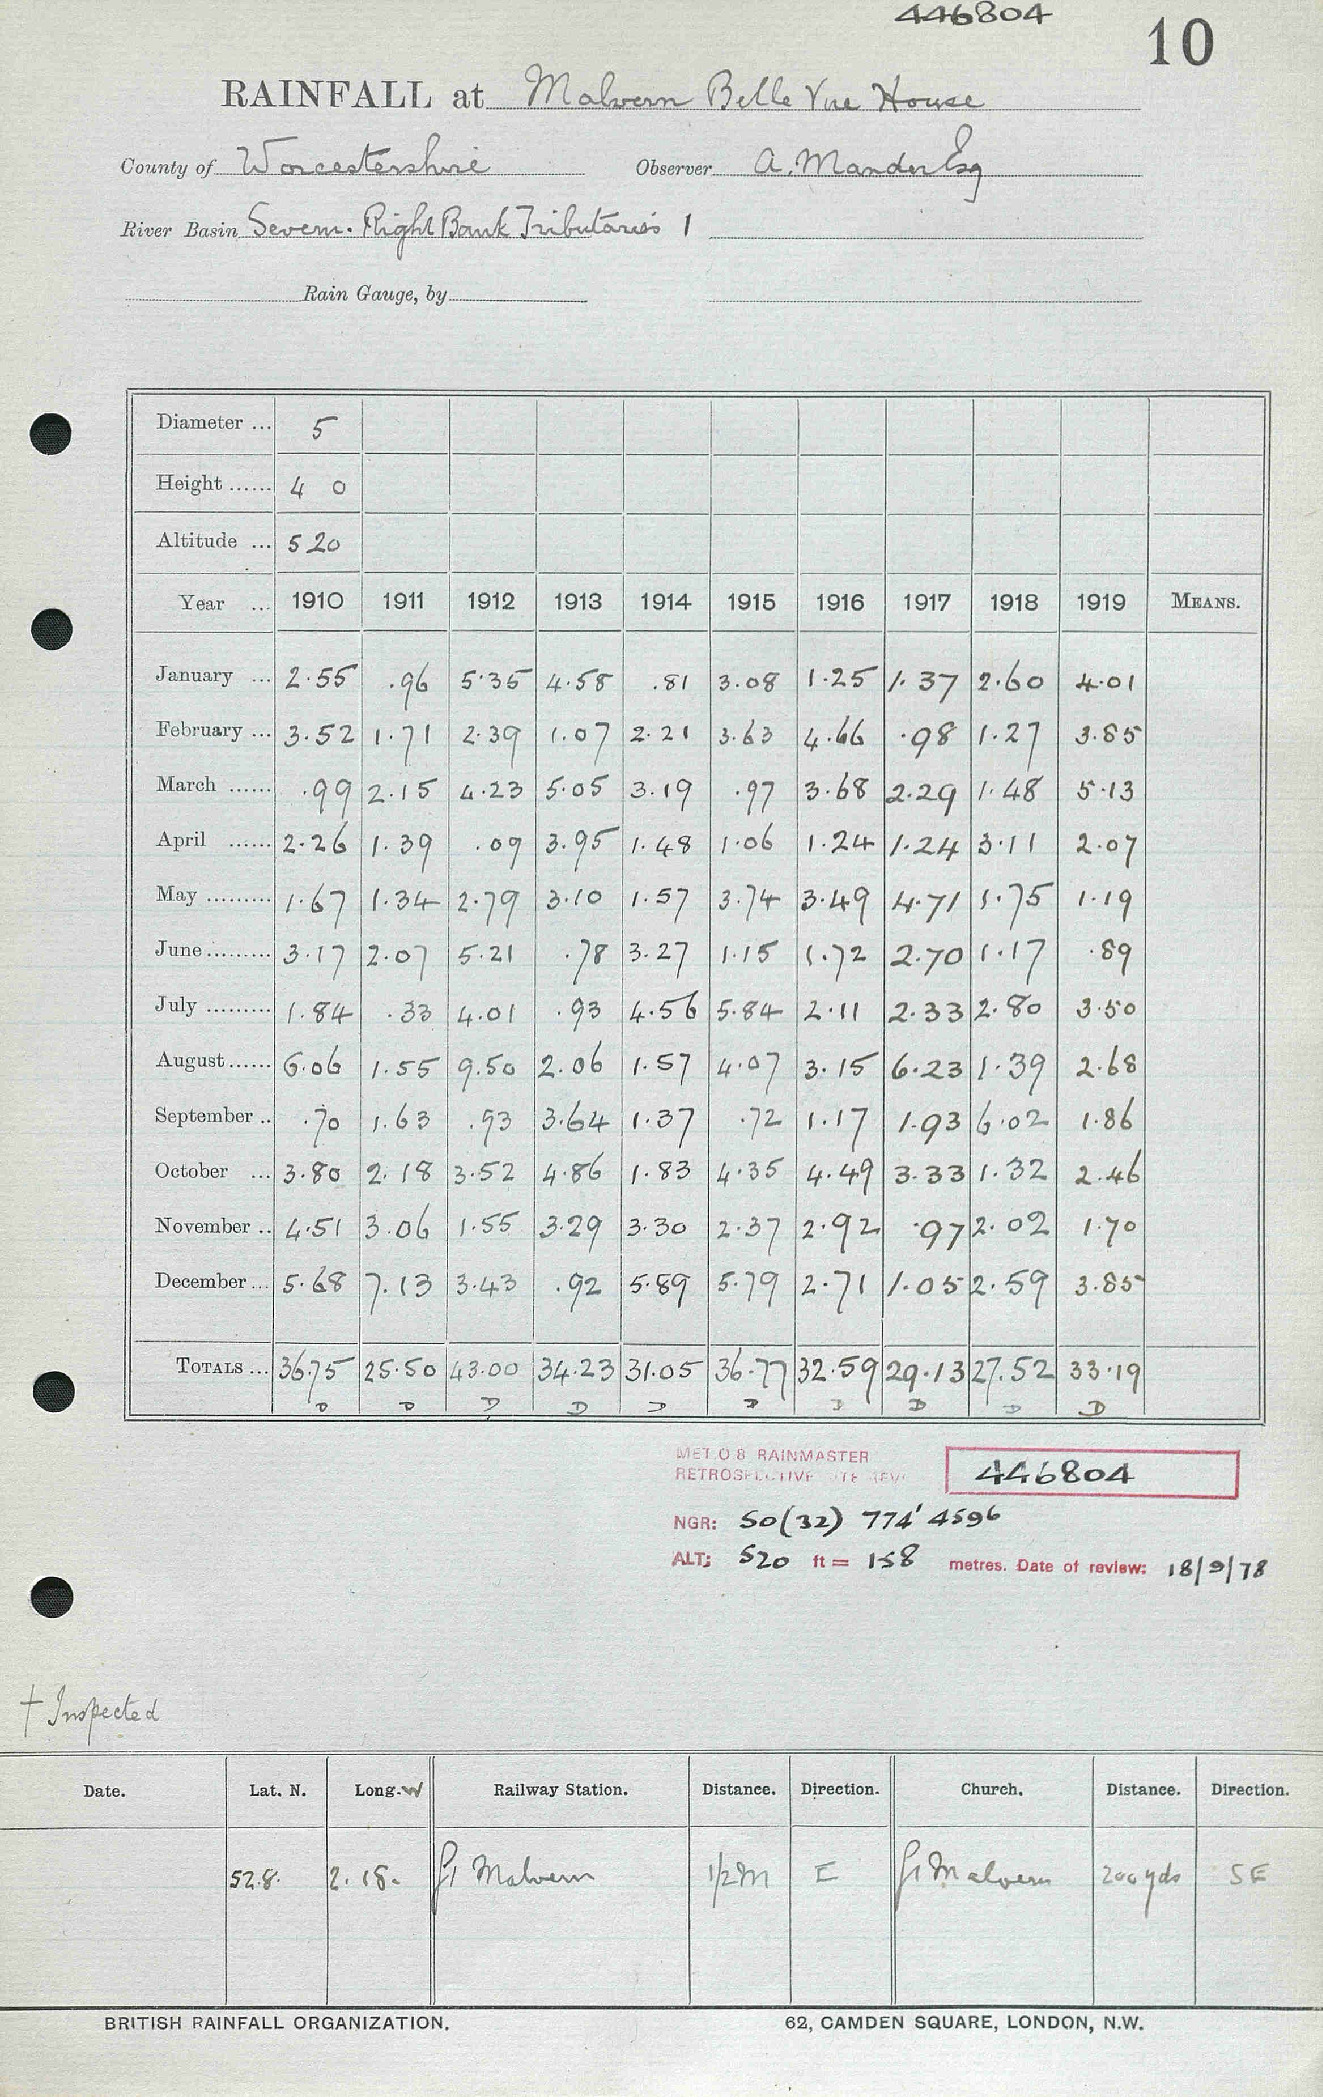 446804
10
RAINFALL at Malvern Belle Vue House
County of Worcestershire Observer A. Mander Esq
River Basin Severn. Right Bank Tributaries 1
Rain Gauge, by
Diameter ... 5
Height ...... 4 0
Altitude ... 520
Year ... 1910 1911 1912 1913 1914 1915 1916 1917 1918 1919 MEANS.
January ... 2.55 .96 5.35 4.58 .81 3.08 1.25 1.37 2.60 4.01
February ... 3.52 1.71 2.39 1.07 2.21 3.63 4.66 .98 1.27 3.85
March ...... .99 2.15 4.23 5.05 3.19 .97 3.68 2.29 1.48 5.13
April ...... 2.26 1.39 .09 3.95 1.48 1.06 1.24 1.24 3.11 2.07
May ......... 1.67 1.34 2.79 3.10 1.57 3.74 3.49 4.71 1.75 1.19
June ......... 3.17 2.07 5.21 .78 3.27 1.15 1.72 2.70 1.17 .89
July ......... 1.84 .33 4.01 .93 4.56 5.84 2.11 2.33 2.80 3.50
August ...... 6.06 1.55 9.50 2.06 1.57 4.07 3.15 6.23 1.39 2.68
September .. .70 1.63 .93 3.64 1.37 .72 1.17 1.93 6.02 1.86
October ... 3.80 2.18 3.52 4.86 1.83 4.35 4.49 3.33 1.32 2.46
November .. 4.51 3.06 1.55 3.29 3.30 2.37 2.92 .97 2.02 1.70
December ... 5.68 7.13 3.43 .92 5.89 5.79 2.71 1.05 2.59 3.85
TOTALS ... 36.75 25.50 43.00 34.23 31.05 36.77 32.59 29.13 27.52 33.19
D D D D D D D D D D
MET.O 8 RAINMASTER
RETROSPECTIVE SITE REV 446804
NGR: SO(32) 774' 4596
ALT: 520 ft = 158 metres. Date of review: 18/9/78
† Inspected
Date. Lat. N. Long. W Railway Station. Distance. Direction. Church. Distance. Direction.
52.8. 2.18. Gt Malvern 1/2 M E Gt Malvern 200 yds SE
BRITISH RAINFALL ORGANIZATION. 62, CAMDEN SQUARE, LONDON, N.W.